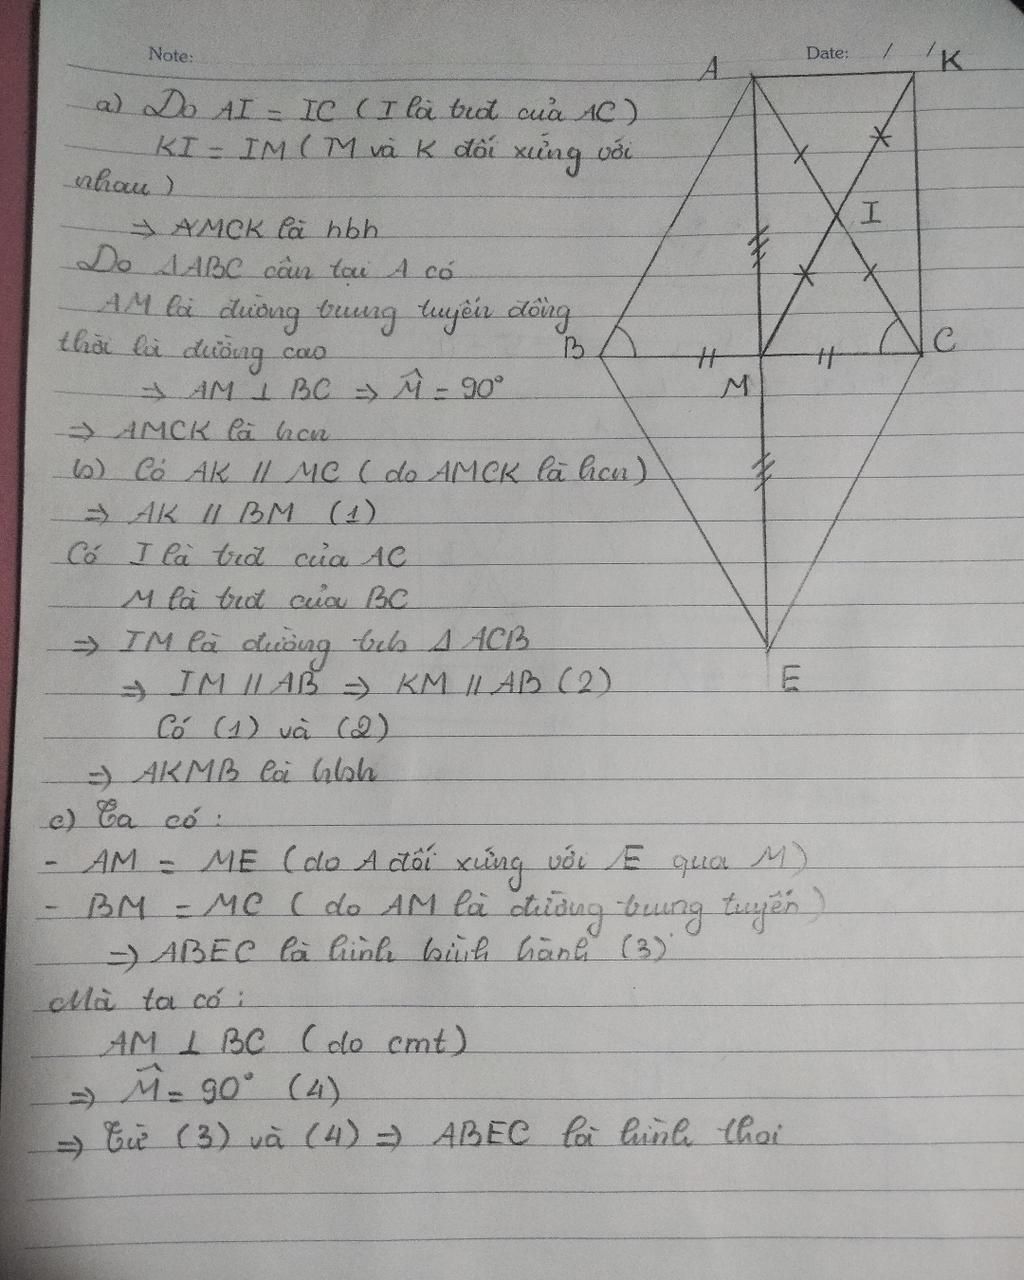 Note:
Date: / /
A
K
I
B
C
M
E
a) Do AI = IC ( I là trđ của AC )
KI = IM ( M và K đối xứng với
nhau )
⇒ AMCK là hbh
Do ΔABC cân tại A có
AM là đường trung tuyến đồng
thời là đường cao
⇒ AM ⊥ BC ⇒ M̂ = 90°
⇒ AMCK là hcn
b) Có AK // MC ( do AMCK là hcn )
⇒ AK // BM (1)
Có I là trđ của AC
M là trđ của BC
⇒ IM là đường trb Δ ACB
⇒ IM // AB ⇒ KM // AB (2)
Có (1) và (2)
⇒ AKMB là hbh
c) Ta có :
- AM = ME ( do A đối xứng với E qua M )
- BM = MC ( do AM là đường trung tuyến )
⇒ ABEC là hình bình hành (3)
Mà ta có :
AM ⊥ BC ( do cmt )
⇒ M̂ = 90° (4)
⇒ Từ (3) và (4) ⇒ ABEC là hình thoi